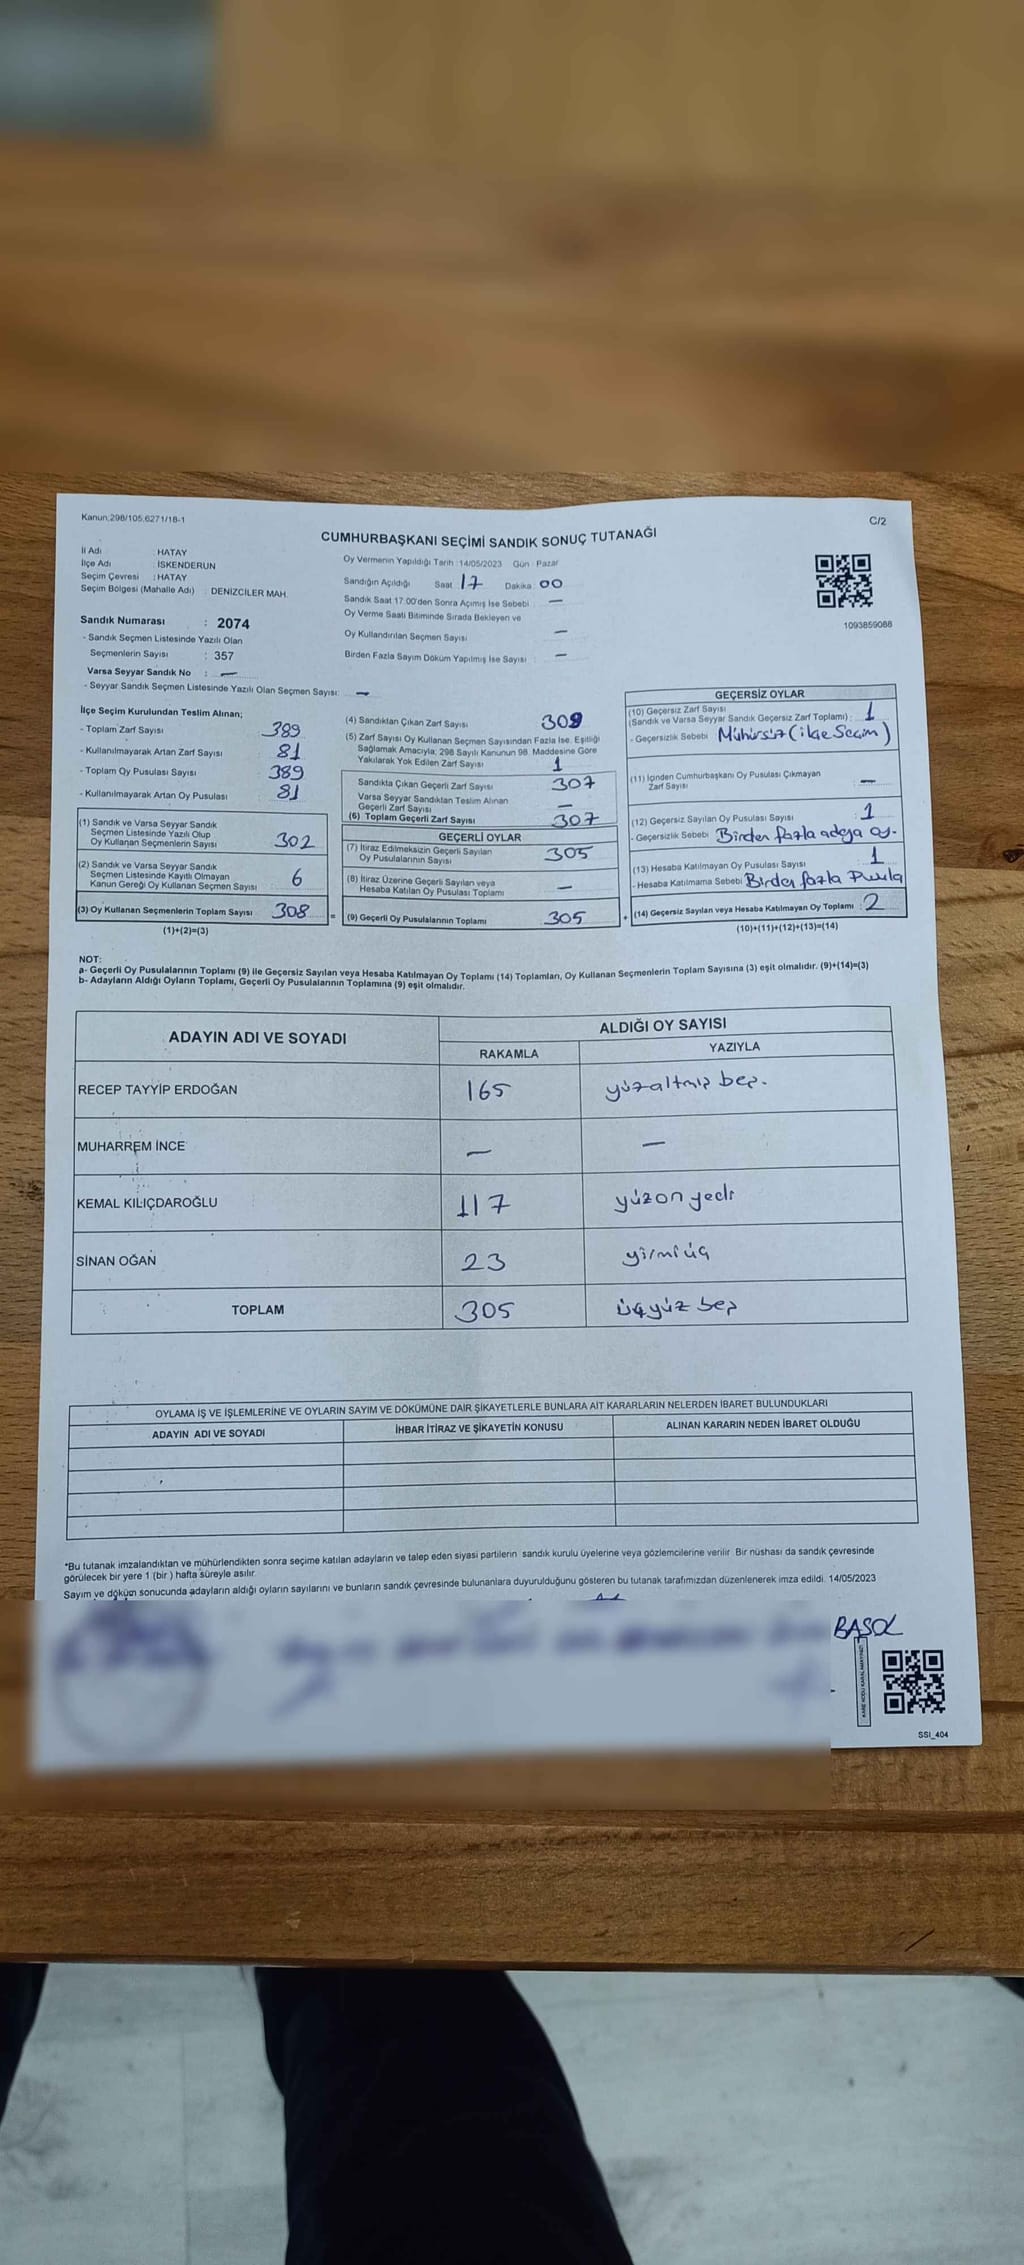 Kanun:298/105,6271/18-1
C/2
CUMHURBAŞKANI SEÇİMİ SANDIK SONUÇ TUTANAĞI
İl Adı : HATAY
İlçe Adı : İSKENDERUN
Seçim Çevresi : HATAY
Seçim Bölgesi (Mahalle Adı) : DENİZCİLER MAH.
Sandık Numarası : 2074
- Sandık Seçmen Listesinde Yazılı Olan
Seçmenlerin Sayısı : 357
Varsa Seyyar Sandık No : —
- Seyyar Sandık Seçmen Listesinde Yazılı Olan Seçmen Sayısı: —
Oy Vermenin Yapıldığı Tarih :14/05/2023 Gün : Pazar
Sandığın Açıldığı Saat 17 Dakika 00
Sandık Saat 17:00'den Sonra Açımış İse Sebebi —
Oy Verme Saati Bitiminde Sırada Bekleyen ve
Oy Kullandırılan Seçmen Sayısı —
Birden Fazla Sayım Döküm Yapılmış İse Sayısı : —
1093859088
İlçe Seçim Kurulundan Teslim Alınan;
- Toplam Zarf Sayısı 389
- Kullanılmayarak Artan Zarf Sayısı 81
- Toplam Oy Pusulası Sayısı 389
- Kullanılmayarak Artan Oy Pusulası 81
(1) Sandık ve Varsa Seyyar Sandık
Seçmen Listesinde Yazılı Olup
Oy Kullanan Seçmenlerin Sayısı 302
(2) Sandık ve Varsa Seyyar Sandık
Seçmen Listesinde Kayıtlı Olmayan
Kanun Gereği Oy Kullanan Seçmen Sayısı 6
(3) Oy Kullanan Seçmenlerin Toplam Sayısı 308 =
(1)+(2)=(3)
(4) Sandıktan Çıkan Zarf Sayısı 308
(5) Zarf Sayısı Oy Kullanan Seçmen Sayısından Fazla İse, Eşitliği
Sağlamak Amacıyla; 298 Sayılı Kanunun 98. Maddesine Göre
Yakılarak Yok Edilen Zarf Sayısı 1
Sandıkta Çıkan Geçerli Zarf Sayısı 307
Varsa Seyyar Sandıktan Teslim Alınan
Geçerli Zarf Sayısı —
(6) Toplam Geçerli Zarf Sayısı 307
GEÇERLİ OYLAR
(7) İtiraz Edilmeksizin Geçerli Sayılan
Oy Pusulalarının Sayısı 305
(8) İtiraz Üzerine Geçerli Sayılan veya
Hesaba Katılan Oy Pusulası Toplamı —
(9) Geçerli Oy Pusulalarının Toplamı 305 +
GEÇERSİZ OYLAR
(10) Geçersiz Zarf Sayısı
(Sandık ve Varsa Seyyar Sandık Geçersiz Zarf Toplamı) : 1
- Geçersizlik Sebebi Mühürsüz (ilçe Seçim)
(11) İçinden Cumhurbaşkanı Oy Pusulası Çıkmayan
Zarf Sayısı —
(12) Geçersiz Sayılan Oy Pusulası Sayısı 1
- Geçersizlik Sebebi Birden fazla adaya oy.
(13) Hesaba Katılmayan Oy Pusulası Sayısı 1
- Hesaba Katılmama Sebebi Birden fazla Pusula
(14) Geçersiz Sayılan veya Hesaba Katılmayan Oy Toplamı : 2
(10)+(11)+(12)+(13)=(14)
NOT:
a- Geçerli Oy Pusulalarının Toplamı (9) ile Geçersiz Sayılan veya Hesaba Katılmayan Oy Toplamı (14) Toplamları, Oy Kullanan Seçmenlerin Toplam Sayısına (3) eşit olmalıdır. (9)+(14)=(3)
b- Adayların Aldığı Oyların Toplamı, Geçerli Oy Pusulalarının Toplamına (9) eşit olmalıdır.
ADAYIN ADI VE SOYADI
ALDIĞI OY SAYISI
RAKAMLA YAZIYLA
RECEP TAYYİP ERDOĞAN 165 yüzaltmış beş.
MUHARREM İNCE — —
KEMAL KILIÇDAROĞLU 117 yüzon yedi
SİNAN OĞAN 23 yirmiüç
TOPLAM 305 üçyüz beş
OYLAMA İŞ VE İŞLEMLERİNE VE OYLARIN SAYIM VE DÖKÜMÜNE DAİR ŞİKAYETLERLE BUNLARA AİT KARARLARIN NELERDEN İBARET BULUNDUKLARI
ADAYIN ADI VE SOYADI İHBAR İTİRAZ VE ŞİKAYETİN KONUSU ALINAN KARARIN NEDEN İBARET OLDUĞU
*Bu tutanak imzalandıktan ve mühürlendikten sonra seçime katılan adayların ve talep eden siyasi partilerin sandık kurulu üyelerine veya gözlemcilerine verilir. Bir nüshası da sandık çevresinde
görülecek bir yere 1 (bir) hafta süreyle asılır.
Sayım ve döküm sonucunda adayların aldığı oyların sayılarını ve bunların sandık çevresinde bulunanlara duyurulduğunu gösteren bu tutanak tarafımızdan düzenlenerek imza edildi. 14/05/2023
BASOL
SSI_404